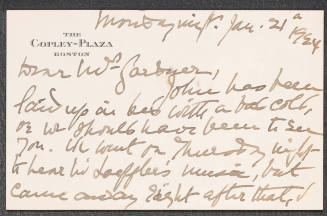 Monday night. Jan. 21st
1924
THE
COPLEY-PLAZA
BOSTON
Dear Mrs Gardner,
John has been
laid up in bed with a bad cold,
or we should have been to see
you. We went on Thursday night
to hear his Loeffler's music, but
came away right after that, &